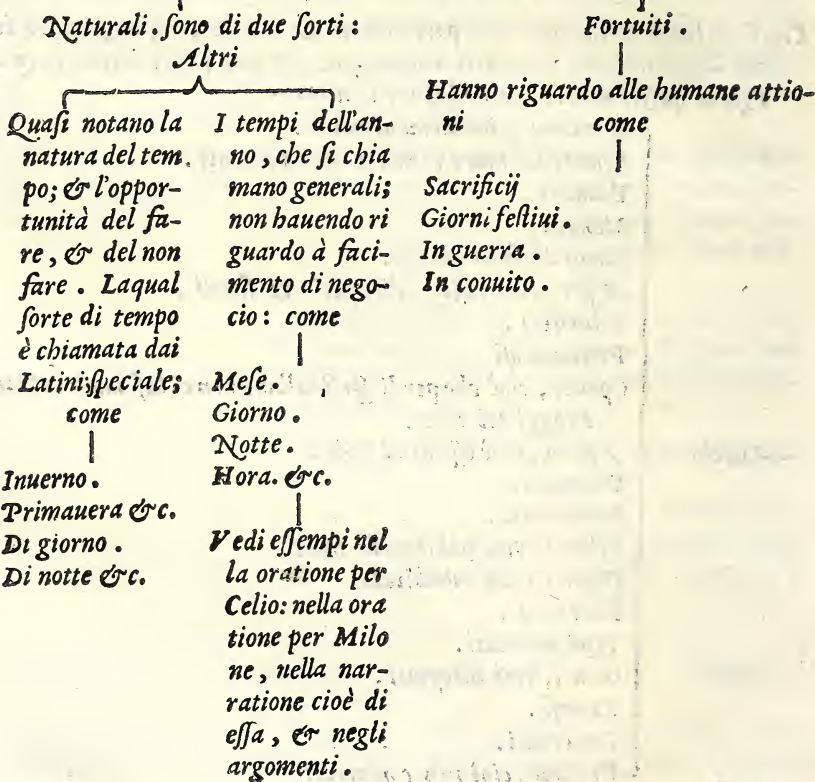 Naturali. ſono di due ſorti:
Altri
Quaſi notano la
natura del tem
po; & l'oppor-
tunità del fa-
re, & del non
fare. Laqual
ſorte di tempo
è chiamata dai
Latini ſpeciale;
come
Inuerno.
Primauera &c.
Di giorno.
Di notte &c.
I tempi dell'an-
no, che ſi chia
mano generali;
non hauendo ri
guardo à faci-
mento di nego-
cio: come
Meſe.
Giorno.
Notte.
Hora. &c.
Vedi eſſempi nel
la oratione per
Celio: nella ora
tione per Milo
ne, nella nar-
ratione cioè di
eſſa, & negli
argomenti.
Fortuiti.
Hanno riguardo alle humane attio-
ni come
Sacrificij
Giorni feſtiui.
In guerra.
In conuito.